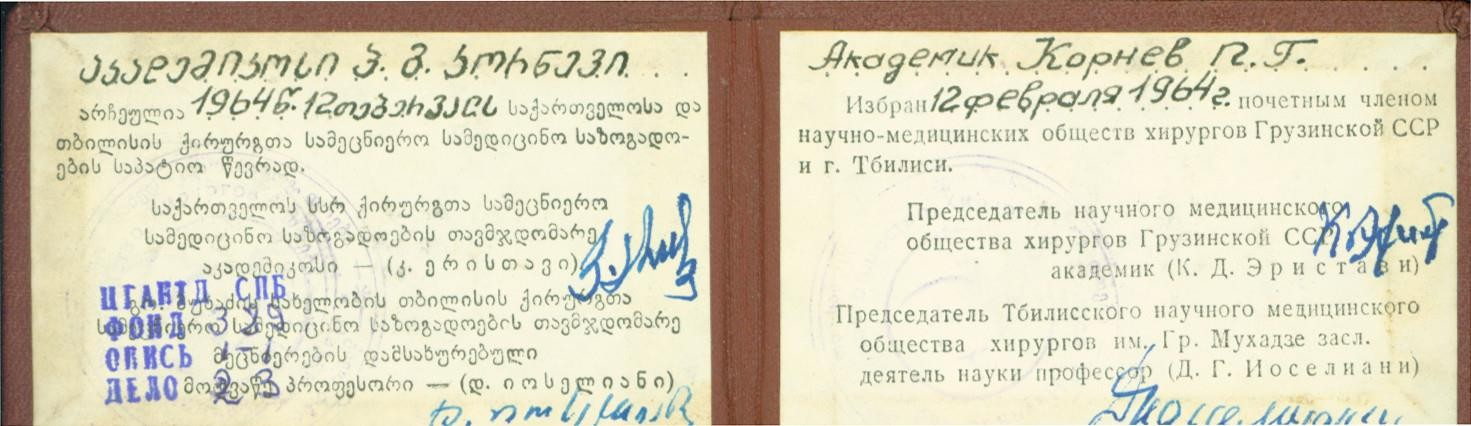 აკადემიკოსი პ. გ. კორნევი
არჩეულია 1964 წ. 12 თებერვალს საქართველოსა და
თბილისის ქირურგთა სამეცნიერო სამედიცინო საზოგადო-
ების საპატიო წევრად.
საქართველოს სსრ ქირურგთა სამეცნიერო
სამედიცინო საზოგადოების თავმჯდომარე
აკადემიკოსი — (კ. ერისთავი)
გრ. მუხაძის სახელობის თბილისის ქირურგთა
სამეცნიერო სამედიცინო საზოგადოების თავმჯდომარე
მეცნიერების დამსახურებული
მოღვაწე პროფესორი — (დ. იოსელიანი)
ЦГАНТД СПБ
ФОНД 339
ОПИСЬ 1-1
ДЕЛО 23
Академик Корнев П. Г.
Избран 12 февраля 1964 г. почетным членом
научно-медицинских обществ хирургов Грузинской ССР
и г. Тбилиси.
Председатель научного медицинского
общества хирургов Грузинской ССР
академик (К. Д. Эристави)
Председатель Тбилисского научного медицинского
общества хирургов им. Гр. Мухадзе засл.
деятель науки профессор (Д. Г. Иоселиани)